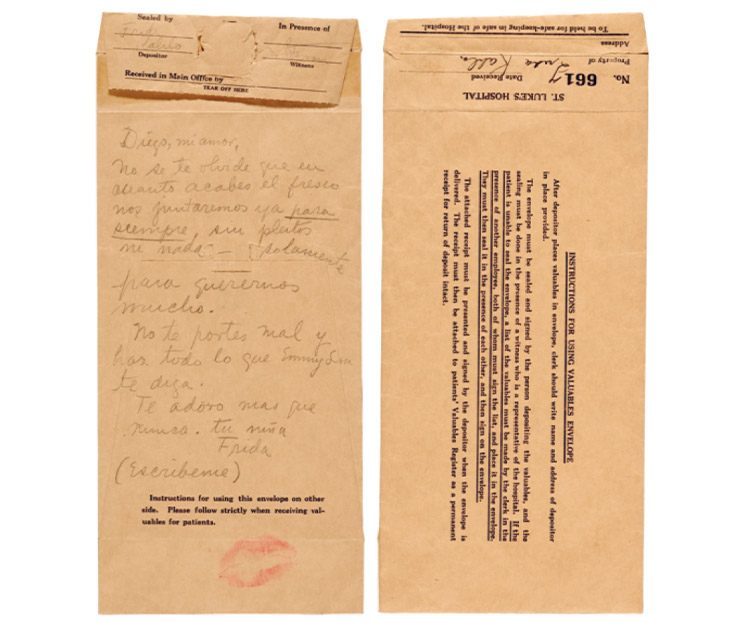 Sealed by
In Presence of
Depositor
Witness
Received in Main Office by
TEAR OFF HERE
Diego, mi amor,
No se te olvide que en
cuanto acabes el fresco
nos juntaremos ya para
siempre, sin pleitos
ni nada, — solamente
para querernos
mucho.
No te portes mal y
haz todo lo que Emmy Lou
te diga.
Te adoro mas que
nunca. tu niña
Frida
(Escribeme)
Instructions for using this envelope on other
side. Please follow strictly when receiving val-
uables for patients.
To be held for safe-keeping in safe of the Hospital.
Address
Property of Frida Kahlo
No. 661
Date Received
ST. LUKE'S HOSPITAL
INSTRUCTIONS FOR USING VALUABLES ENVELOPE
After depositor places valuables in envelope, clerk should write name and address of depositor
in place provided.
The envelope must be sealed and signed by the person depositing the valuables, and the
sealing must be done in the presence of a witness who is a representative of the hospital. If the
patient is unable to seal the envelope, a list of the valuables must be made by the clerk in the
presence of another employee, both of whom must sign the list, and place it in the envelope.
They must then seal it in the presence of each other, and then sign on the envelope.
The attached receipt must be presented and signed by the depositor when the envelope is
delivered. The receipt must then be attached to patients' Valuables Register as a permanent
receipt for return of deposit intact.